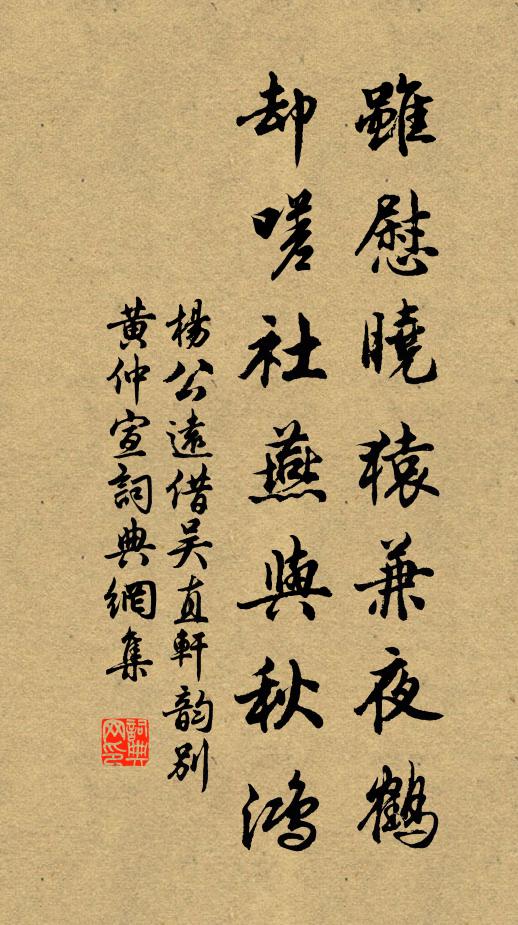 雖慰曉猿兼夜鶴
却嗟社燕與秋鴻
楊公遠借吴直軒韵别
黄仲宣詞典網集
詞典网印